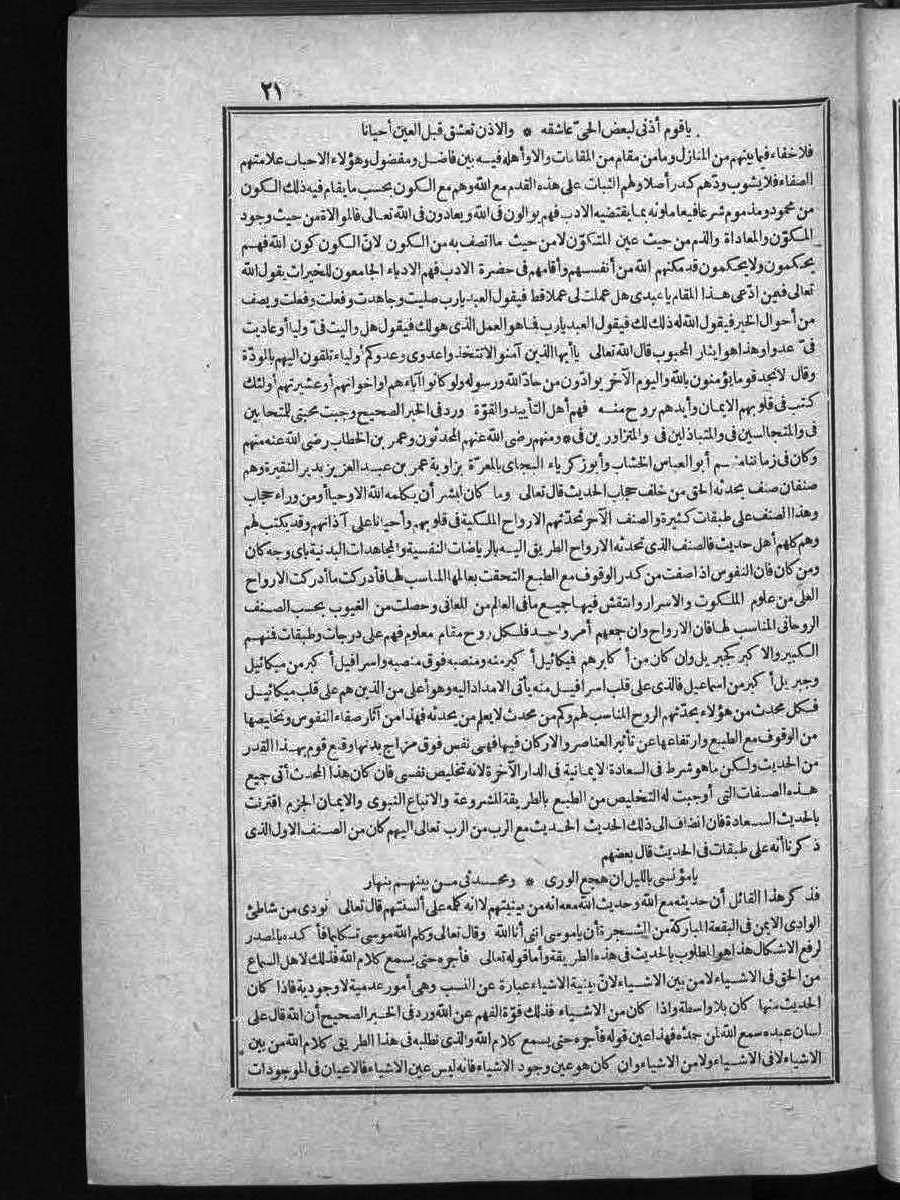 ٢١
ياقوم أذنى لبعض الحىّ عاشقه * والاذن تعشق قبل العين أحيانا
فلاخفاء فيما بينهم من المنازل ومامن مقام من المقامات والاوأهله فيه بين فاضل ومفضول وهؤلاء الاحباب علامتهم
الصفاء فلايشوب ودّهم كدر أصلا ولهم الثبات على هذه القدم مع الله وهم مع الكون بحسب مايقام فيه ذلك الكون
من محمود ومذموم شرعا فيعاملونه بما يقتضيه الادب فهم يوالون فى الله ويعادون فى الله تعالى فالموالاة من حيث وجود
المكوّن والمعاداة والذم من حيث عين المتكوّن لامن حيث مااتصف به من الكون لانّ الكون كون الله فهم
يحكمون ولايحكمون قد مكنهم الله من أنفسهم وأقامهم فى حضرة الادب فهم الادباء الجامعون للخيرات يقول الله
تعالى فيمن ادّعى هذا المقام ياعبدى هل عملت لى عملا قط فيقول العبد يارب صليت وجاهدت وفعلت وفعلت ويصف
من أحوال الخير فيقول الله له ذلك لك فيقول العبد يارب فاهو العمل الذى هو لك فيقول هل واليت فىّ وليا أوعاديت
فىّ عدوا وهذا هو ايثار المحبوب قال الله تعالى ياأيها الذين آمنوا لاتتخذوا عدوى وعدوكم أولياء تلقون اليهم بالمودّة
وقال لاتجد قوما يؤمنون بالله واليوم الآخر يوادّون من حادّ الله ورسوله ولو كانوا آباءهم اواخوانهم أوعشيرتهم أولئك
كتب فى قلوبهم الايمان وأيدهم بروح منه فهم أهل التأييد والقوّة ورد فى الخبر الصحيح وجبت محبتى للمتحابين
فى والمتجالسين فى والمتباذلين فى والمتزاورين فى * ومنهم رضى الله عنهم المحدثون وعمر بن الخطاب رضى الله عنه منهم
وكان فى زماننا منهم أبو العباس الخشاب وأبوزكرياء البجاى بالمعرّة بزاوية عمر بن عبد العزيز بدير النقيرة وهم
صنفان صنف يحدثه الحق من خلف حجاب الحديث قال تعالى وما كان لبشر أن يكلمه الله الاوحيا أو من وراء حجاب
وهذا الصنف على طبقات كثيرة والصنف الآخر تحدّثهم الارواح الملكية فى قلوبهم وأحيانا على آذانهم وقد يكتب لهم
وهم كلهم أهل حديث فالصنف الذى تحدثه الارواح الطريق اليه بالرياضات النفسية والمجاهدات البدنية باى وجه كان
ومن كان فان النفوس اذا صفت من كدر الوقوف مع الطبع التحقت بعالمها المناسب لها فأدركت ماأدركت الارواح
العلى من علوم الملكوت والاسرار وانتقش فيها جميع مافى العالم من المعانى وحصلت من الغيوب بحسب الصنف
الروحانى المناسب لها فان الارواح وان جمعهم أمر واحد فلكل روح مقام معلوم فهم على درجات وطبقات فنهم
الكبير والاكبر كجبريل وان كان من أكابرهم فيكائيل أكبر منه ومنصبه فوق منصبه واسرافيل أكبر من ميكائيل
وجبريل أكبر من اسماعيل فالذى على قلب اسرافيل منه يأتى الامداد اليه وهو أعلى من الذين هم على قلب ميكائيل
فكل محدث من هؤلاء يحدّثهم الروح المناسب لهم وكم من محدث لايعلم من يحدثه فهذا من آثار صفاء النفوس وتخليصها
من الوقوف مع الطبع وارتفاعها عن تأثير العناصر والاركان فيها فهى نفس فوق مزاج بدنها وقنع قوم بهذا القدر
من الحديث ولكن ماهو شرط فى السعادة الايمانية فى الدار الآخرة لانه تخليص نفسى فان كان هذا المحدث أتى جميع
هذه الصفات التى أوجبت له التخليص من الطبع بالطريقة المشروعة والاتباع النبوى والايمان الجزم اقترنت
بالحديث السعادة فان انضاف الى ذلك الحديث الحديث مع الرب من الرب تعالى اليهم كان من الصنف الاول الذى
ذكرنا أنه على طبقات فى الحديث قال بعضهم
يامؤنسى بالليل ان هجع الورى * ومحدثى من بينهم بنهار
فذكر هذا القائل أن حديثه مع الله وحديث الله معه انه من بينيتهم لاانه كله على ألسنتهم قال تعالى نودى من شاطئ
الوادى الايمن فى البقعة المباركة من الشجرة أن ياموسى انى أنا الله وقال تعالى وكلم الله موسى تكليما فأكده بالمصدر
لرفع الاشكال هذا هو المطلوب بالحديث فى هذه الطريقة وأما قوله تعالى فأجره حتى يسمع كلام الله فذلك لاهل السماع
من الحق فى الاشياء لامن بين الاشياء لانّ بينية الاشياء عبارة عن النسب وهى أمور عدمية لاوجودية فاذا كان
الحديث منها كان بلاواسطة واذا كان من الاشياء فذلك قوّة الفهم عن الله ورد فى الخبر الصحيح أن الله قال على
لسان عبده سمع الله لمن حمده فهذا عين قوله فأجره حتى يسمع كلام الله والذى نطلبه فى هذا الطريق كلام الله من بين
الاشياء لافى الاشياء ولامن الاشياء وان كان هو عين وجود الاشياء فانه ليس عين الاشياء فالاعيان فى الموجودات